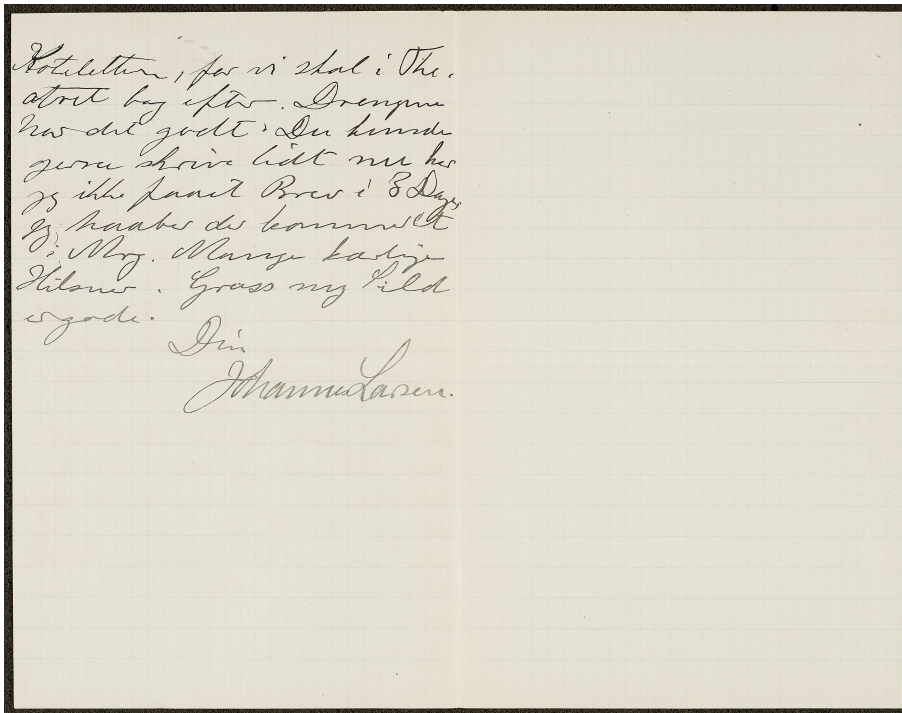 Koteletten, for vi skal i The-
atret bag efter. Drengene
har det godt. Du kunde
gerne skrive lidt nu har
jeg ikke faaet Brev i 3 Dage,
jeg haaber der kommer et
i Mrg. Mange kærlige
Hilsner. Græss og Sild
er gode.
Din
Johannes Larsen.